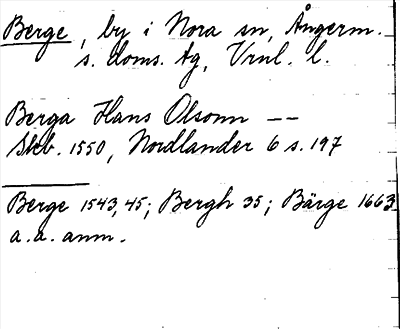 Berge, by i Nora sn, Ångerm.
s. doms. tg, Vrnl. l.
Berga Hans Olsonn --
Skb. 1550, Nordlander 6 s. 197
Berge 1543, 45; Bergh 35; Bärge 1663
a.a. anm.